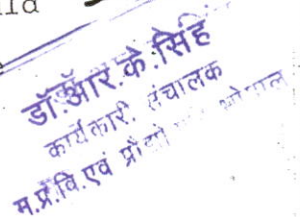 डॉ.आर.के.सिंह
कार्यकारी संचालक
म.प्र.वि.एवं प्रौद्यो भोपाल